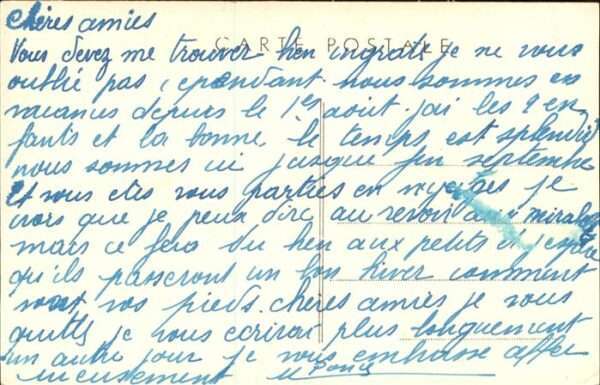 Chères amies
CARTE POSTALE
Vous devez me trouver bien ingrate je ne vous
oublie pas, cependant nous sommes en
vacances depuis le 1er août. j'ai les 2 en
fants et la bonne. le temps est splendide
nous sommes ici jusque fin septembre
Et vous etes vous parties en voyages je
crois que je peux dire au revoir aux
mais ce fera du bien aux petits et j'espère
qu'ils passeront un bon hiver comment
vont vos pieds. chères amies je vous
quitte je vous ecrirai plus longuement
un autre jour je vous embrasse affec